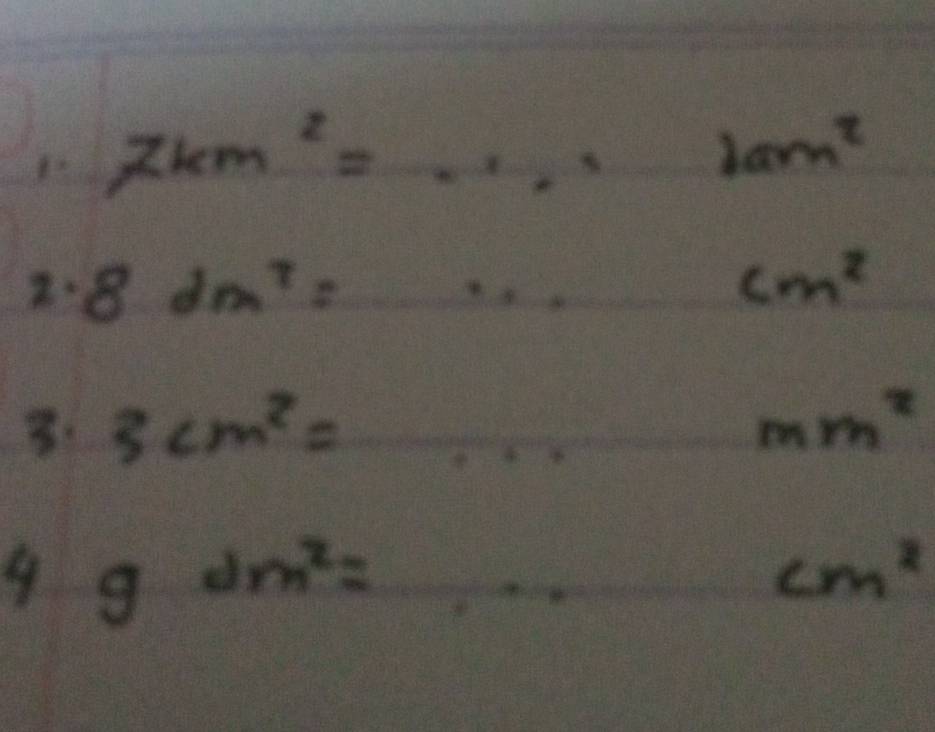 1. 7 km² = .... dam²
2. 8 dm² = ... cm²
3. 3 cm² = ... mm²
4 9 dm² = ... cm²